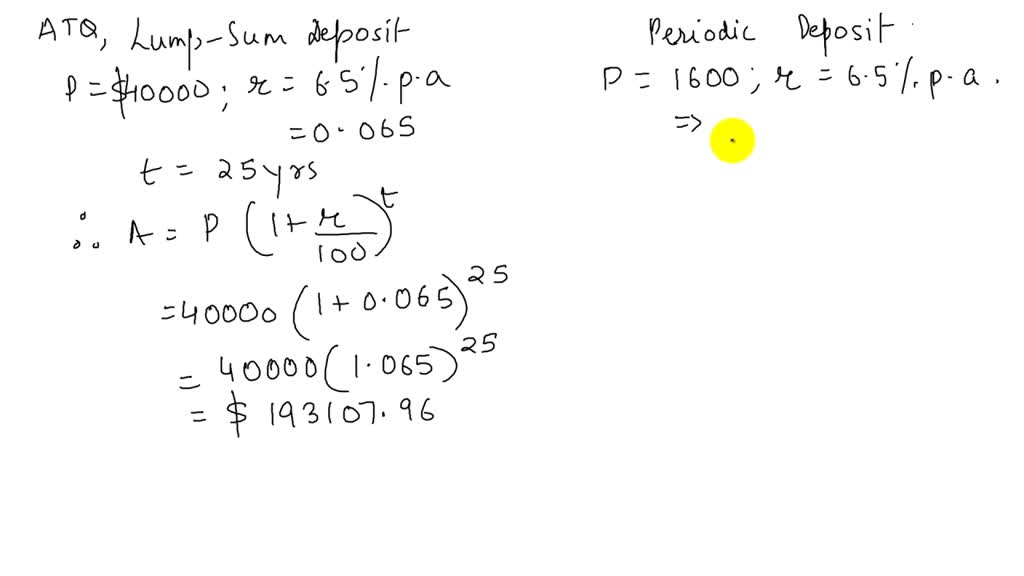 ATQ, Lump-Sum Deposit
P = $40000; r = 6.5% p.a
= 0.065
t = 25 yrs
∴ A = P (1 + r/100)^t
= 40000 (1 + 0.065)^25
= 40000 (1.065)^25
= $ 193107.96
Periodic Deposit
P = 1600; r = 6.5% p.a.
=>